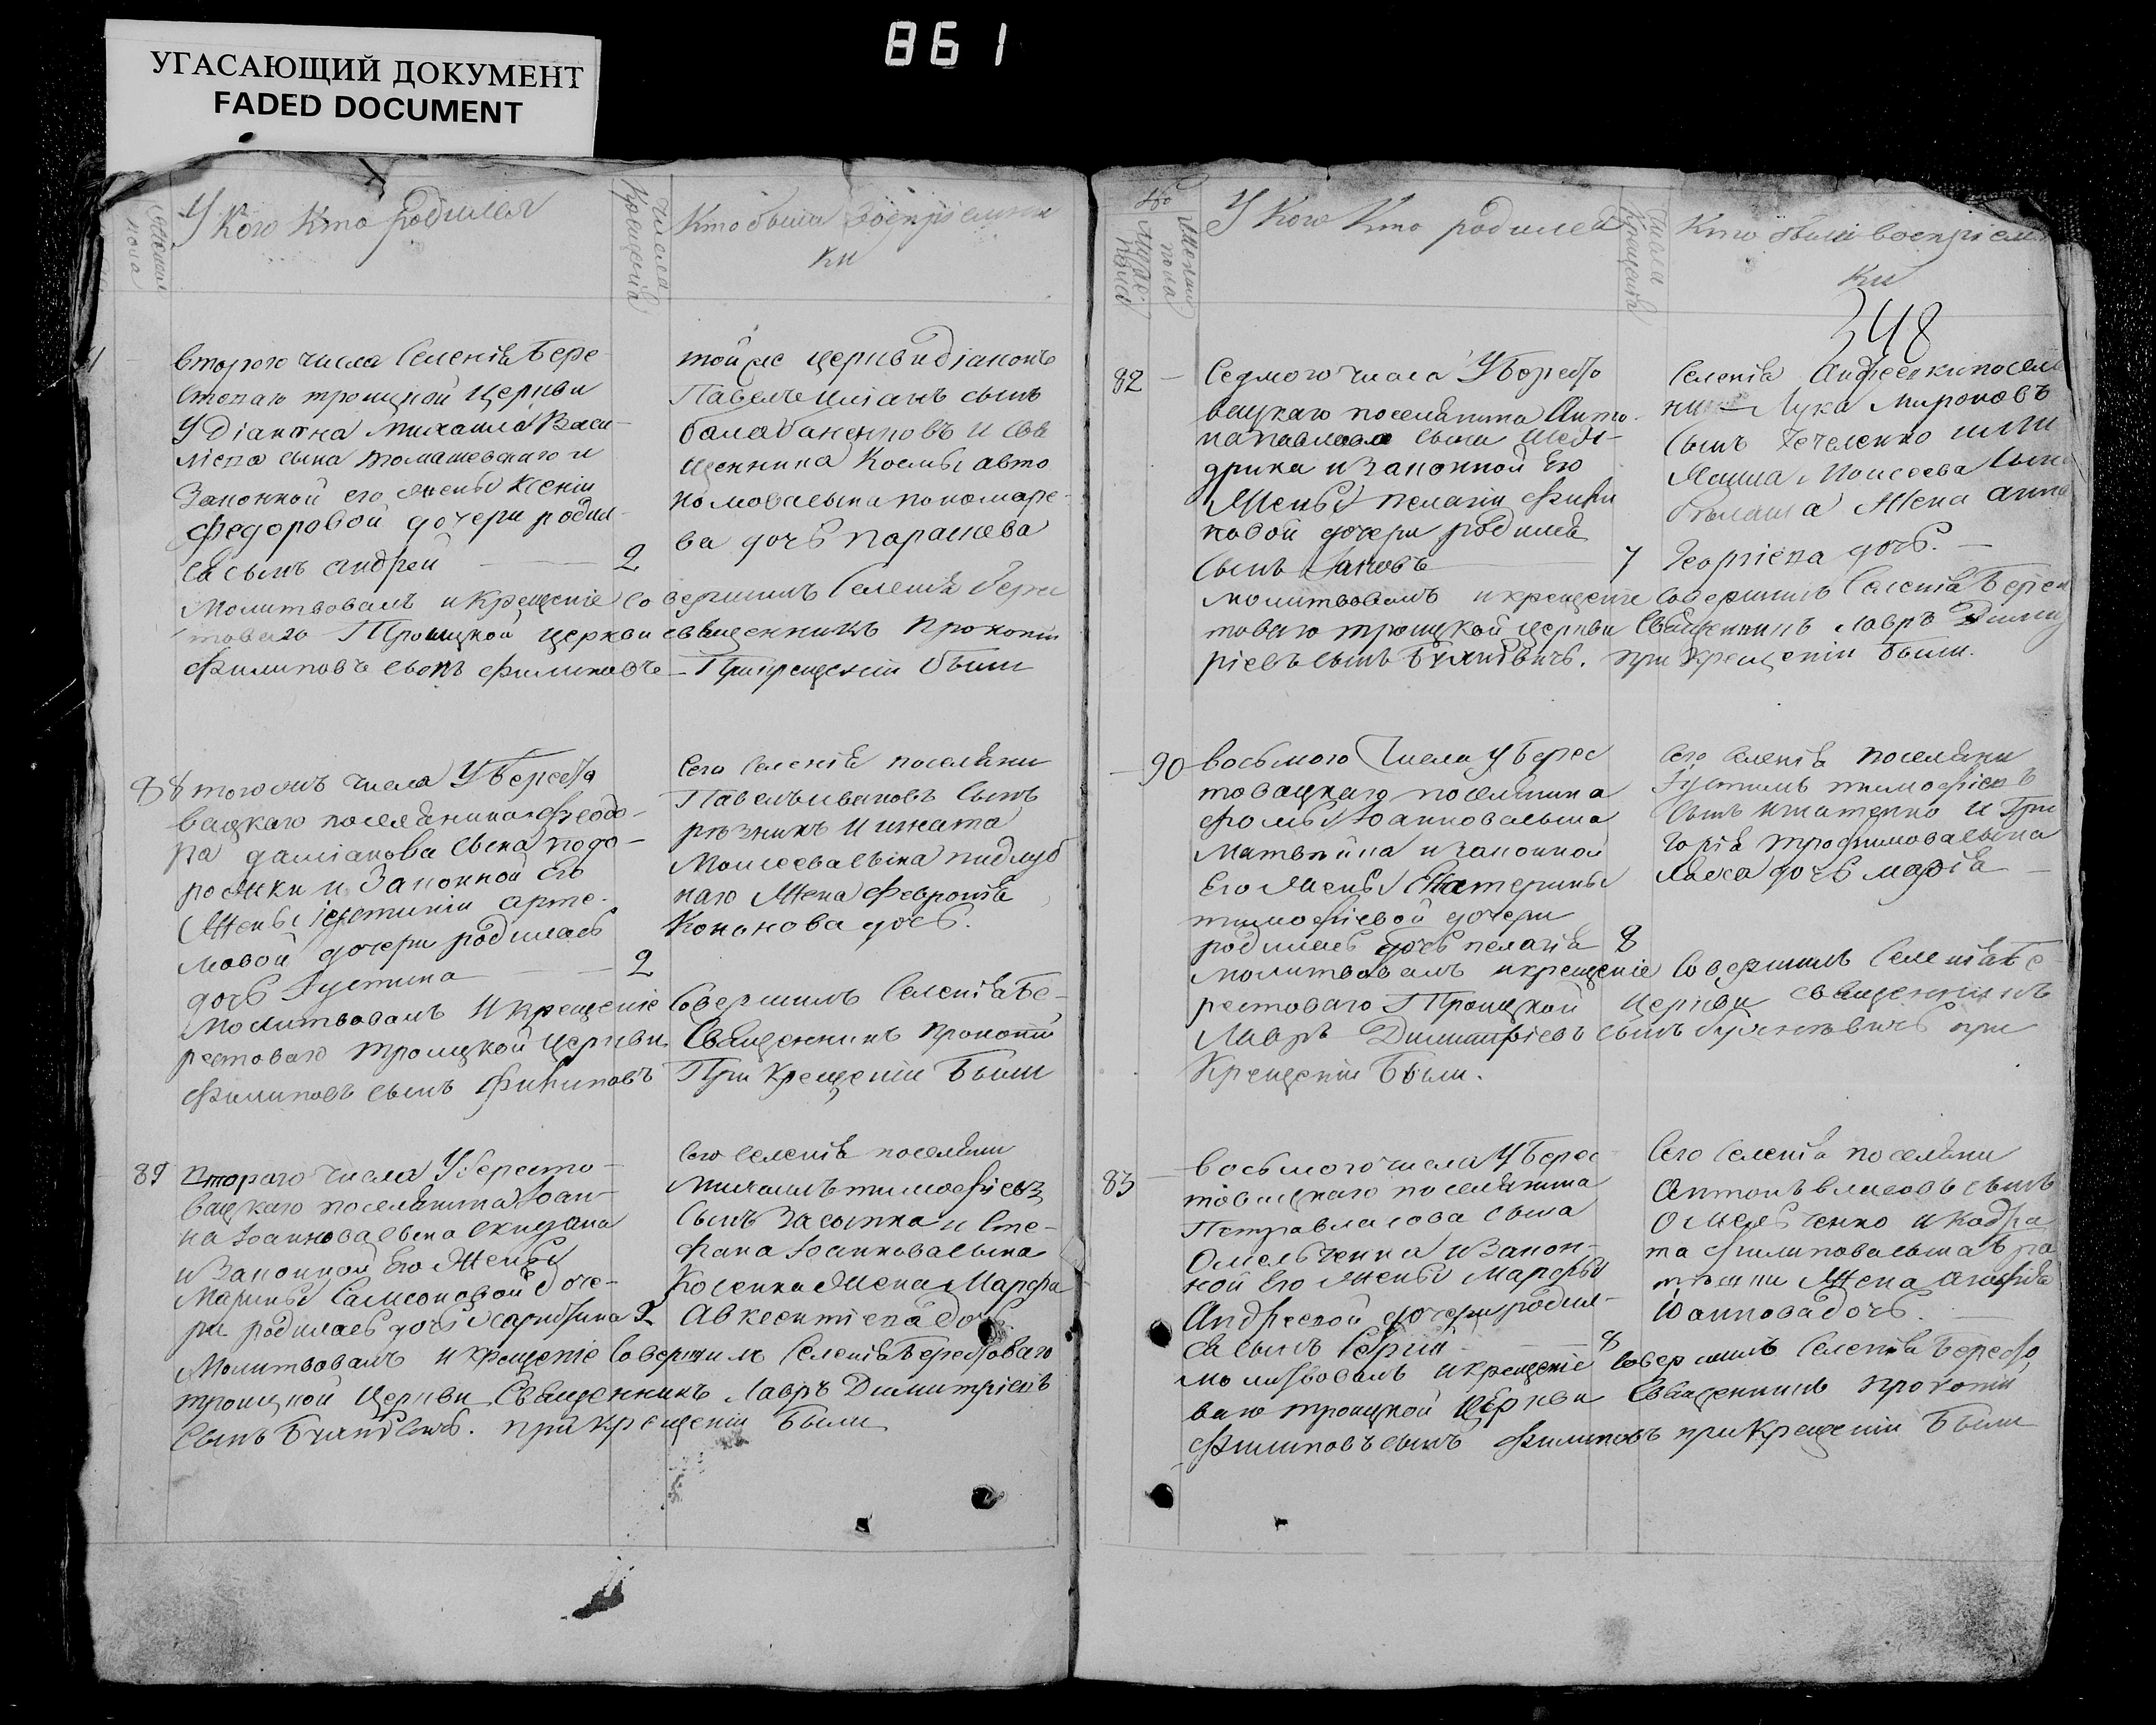 861
УГАСАЮЩИЙ ДОКУМЕНТ
FADED DOCUMENT
Женска пола
У Кого Кто родился
числа Крещенія
Кто были воспріемни
ки
второго числа Селенія Бере
стоваго троицкой церкви
У Діакона Михаила Васи-
ліева сына томашевскаго и
Законной его жены Ксеніи
Федоровой дочери родил-
ся сынъ андрей 2
той же церкви діаконъ
Павелъ сынъ
и свя
щенника Косьмы авто
номова сына пономаре-
ва дочь параскева
Молитвовалъ и Крещеніе совершилъ Селенія Берес
товаго Троицкой церкви священникъ Прокопій
Филиповъ сынъ Филиповъ – При крещеніи Были
88 того жъ числа У Бересто
вацкаго поселянина Феодо-
ра даміанова сына подо-
рожки и Законной Его
Жены арте-
мовой дочери родилась
дочь Іустина 2
Сего Селенія поселяни
Павелъ ивановъ Сынъ
резникъ и игната
Моисеева сына пидлуб
наго Жена Февронія
Кононова дочь.
Молитвовалъ и крещеніе Совершилъ Селенія Бе-
рестоваго троицкой Церкви Священникъ прокопій
Филиповъ сынъ Филиповъ При Крещеніи Были
89 втораго числа У Бересто-
вацкаго поселянина Іоан-
на Іоаннова сына
и Законной Его Жены
Марины Самсоновой доче-
ри родилась дочь харитина 2
Сего Селенія поселяни
михаилъ тимофіевъ
Сынъ Засыпка и Сте-
фана Іоаннова сына
Косенка Жена Марфа
Авксентіева дочь.
Молитвовалъ и крещеніе Совершилъ Селенія Берестоваго
троицкой Церкви Священникъ Лавръ Димитріевъ
Сынъ при крещеніи Были
Муже. пола
Женска пола
У Кого Кто родился
Числа Крещенія
Кто были воспріемни
ки
348
82 Седмого числа У Бересто
вацкаго поселянина Анто-
на павлова сына
и Законной Его
Жены пелагіи
новой дочери родился
Сынъ Іаковъ 7
Селенія Андреевки поселя
нинъ Лука Мироновъ
Сынъ Чечеленко или
Моисеева Сына
Жена анна
Георгіева дочь.
молитвовалъ и крещеніе Совершилъ Селенія Берес
товаго троицкой церкви Священникъ Лавръ Димит
ріевъ Сынъ при Крещеніи Были.
90 восьмого числа У Берес
товацкаго поселянина
Фомы Іоаннова сына
Матвѣйка и законной
Его Жены Екатерины
тимофіевой дочери
родилась дочь пелагія 8
Сего Селенія поселяни
Іустинъ тимофіевъ
Сынъ игнатенко и Гри
горія трофимова сына
дочь марія
молитвовалъ и крещеніе Совершилъ Селенія Бе
рестоваго Троицкой Церкви священникъ
Лавръ Димитріевъ сынъ при
Крещеніи Были.
83 восьмого числа У Берес
товацкаго поселянина
Петра власова сына
Омельченка и Закон-
ной Его Жены Марфы
Андреевой дочери родил-
ся сынъ Сергій 8
Сего Селенія поселяни
Антонъ власовъ сынъ
Омельченко и кодра
та филипова сына
Жена Агафія
Іоаннова дочь.
молитвовалъ и крещеніе Совершилъ Селенія Бересто
ваго троицкой Церкви Священникъ прокопій
Филиповъ сынъ Филиповъ при Крещеніи Были